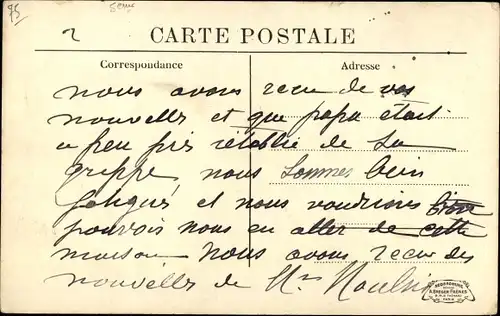 75
2
CARTE POSTALE
Correspondance
Adresse
nous avons recu de vos
nouvelles et que papa était
a peu près rétablie de sa
grippe nous sommes bein
fatigués et nous voudrions bien
pouvoir nous en aller de cette
maison nous avons recu des
nouvelles de Mr